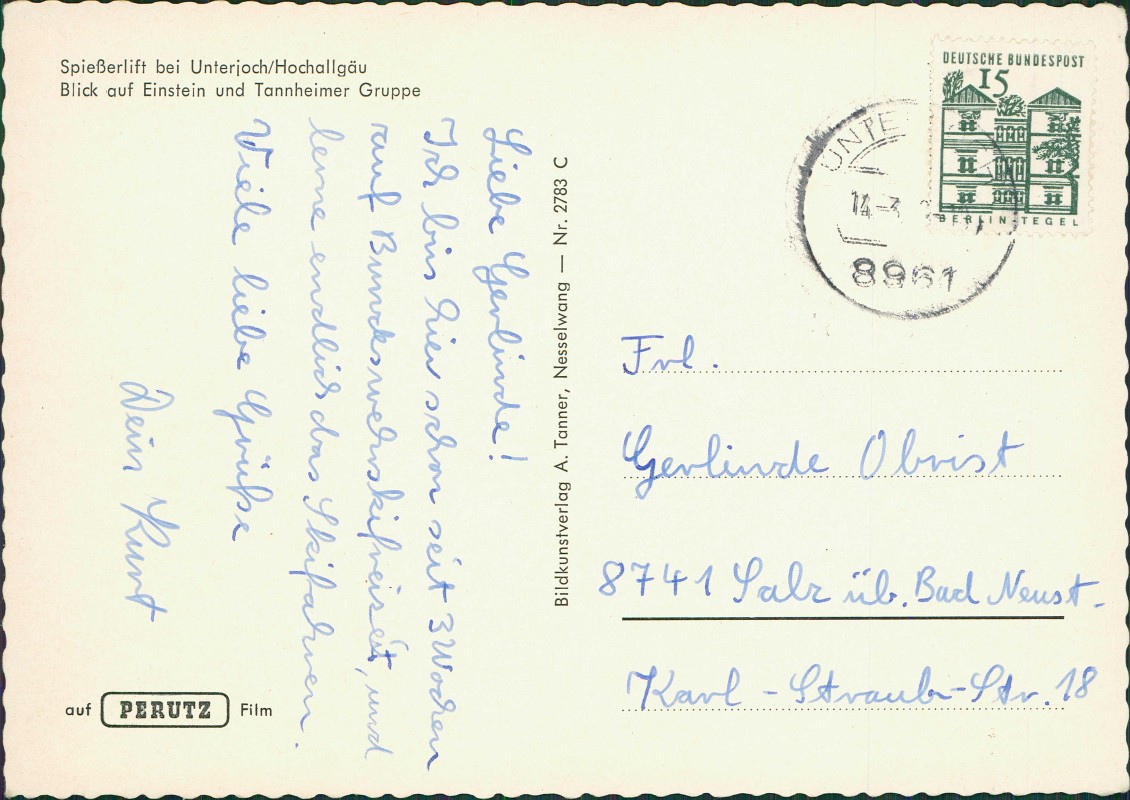 Spießerlift bei Unterjoch/Hochallgäu
Blick auf Einstein und Tannheimer Gruppe
Liebe Gerlinde!
Ich bin hier schon seit 3 Wochen
auf Bundeswehrskifreizeit, und
lerne endlich das Skifahren.
Viele liebe Grüße
Dein Kurt
auf PERUTZ Film
Bildkunstverlag A. Tanner, Nesselwang — Nr. 2783 C
DEUTSCHE BUNDESPOST
15
BERLIN-TEGEL
14-3
8961
Frl.
Gerlinde Obrist
8741 Salz üb. Bad Neust.
Karl-Straub-Str. 18